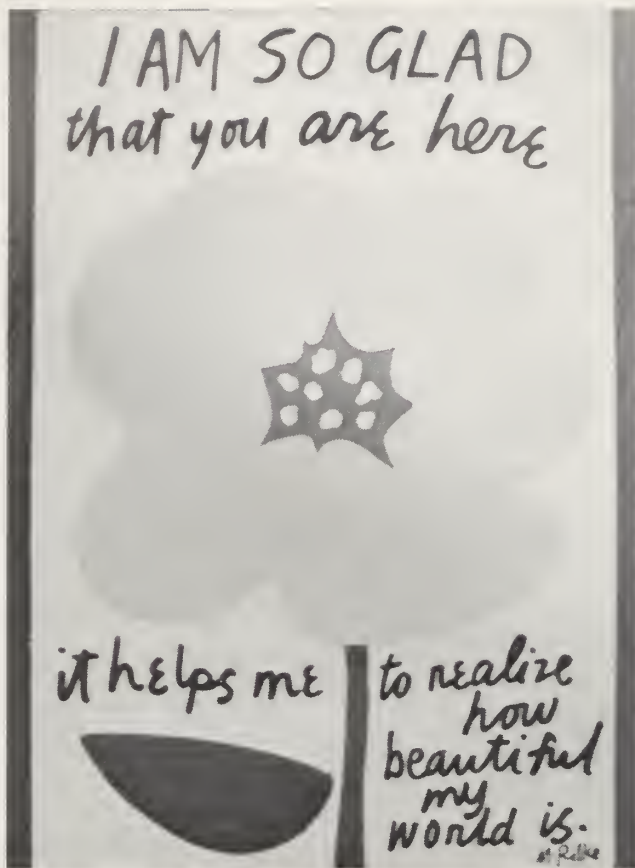 I AM SO GLAD
that you are here
it helps me
to realize
how
beautiful
my
world is.